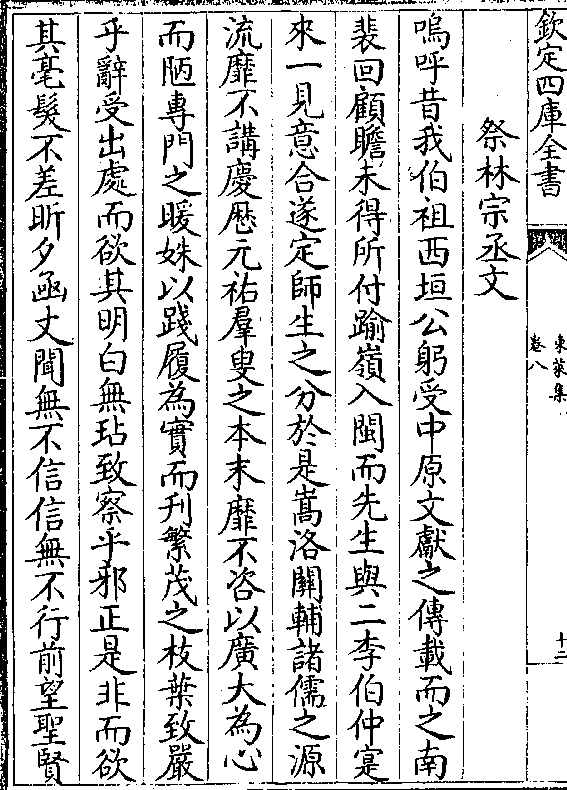 欽定四庫全書
東萊集
卷八
十二
祭林宗丞文
嗚呼昔我伯祖西垣公躬受中原文獻之傳載而之南
裴回顧瞻未得所付踰嶺入閩而先生與二李伯仲寔
來一見意合遂定師生之分於是嵩洛關輔諸儒之源
流靡不講慶厯元祐羣叟之本末靡不咨以廣大為心
而陋專門之暖姝以踐履為實而刋繁茂之枝葉致嚴
乎辭受出處而欲其明白無玷致察乎邪正是非而欲
其毫髮不差昕夕函丈聞無不信信無不行前望聖賢